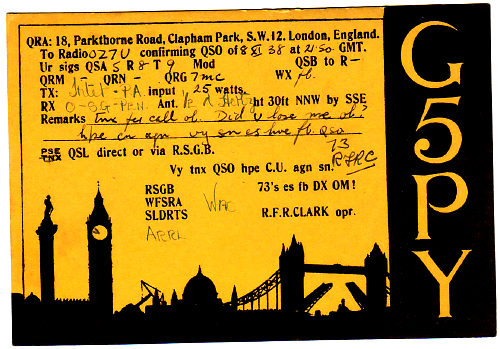 QRA: 18, Parkthorne Road, Clapham Park, S.W.12. London, England.
To Radio OZ7U confirming QSO of 8 XI 38 at 21:50 GMT.
Ur sigs QSA 5 R 8 T 9 Mod QSB to R-
QRM QRN - QRG 7mc WX fb.
TX: PA input 25 watts.
RX O-SG-PEN. Ant. ht 30ft NNW by SSE
Remarks tnx fer call ob. Did u lose me ob?
hpe cu agn vy sn es hve fb qso
73
RFRC
PSE
TNX QSL direct or via R.S.G.B.
Vy tnx QSO hpe C.U. agn sn.
RSGB
WFSRA
SLDRTS
WAC
ARRL
73's es fb DX OM!
R.F.R.CLARK opr.
G5PY